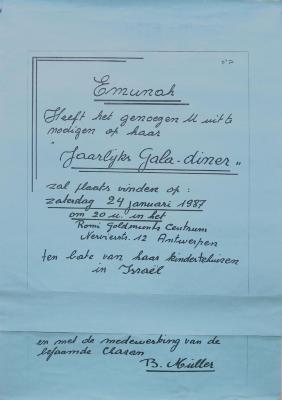 n°7
Emunah
Heeft het genoegen U uit te
nodigen op haar
"Jaarlijks Gala-diner"
zal plaats vinden op:
zaterdag 24 januari 1987
om 20 u. in het
Romi Goldmuntz Centrum
Nerviërstr. 12 Antwerpen
ten bate van haar kindertehuizen
in Israël
en met de medewerking van de
befaamde Chazan
B. Müller